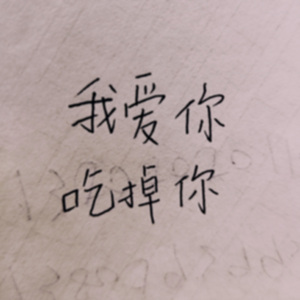 我爱你
吃掉你